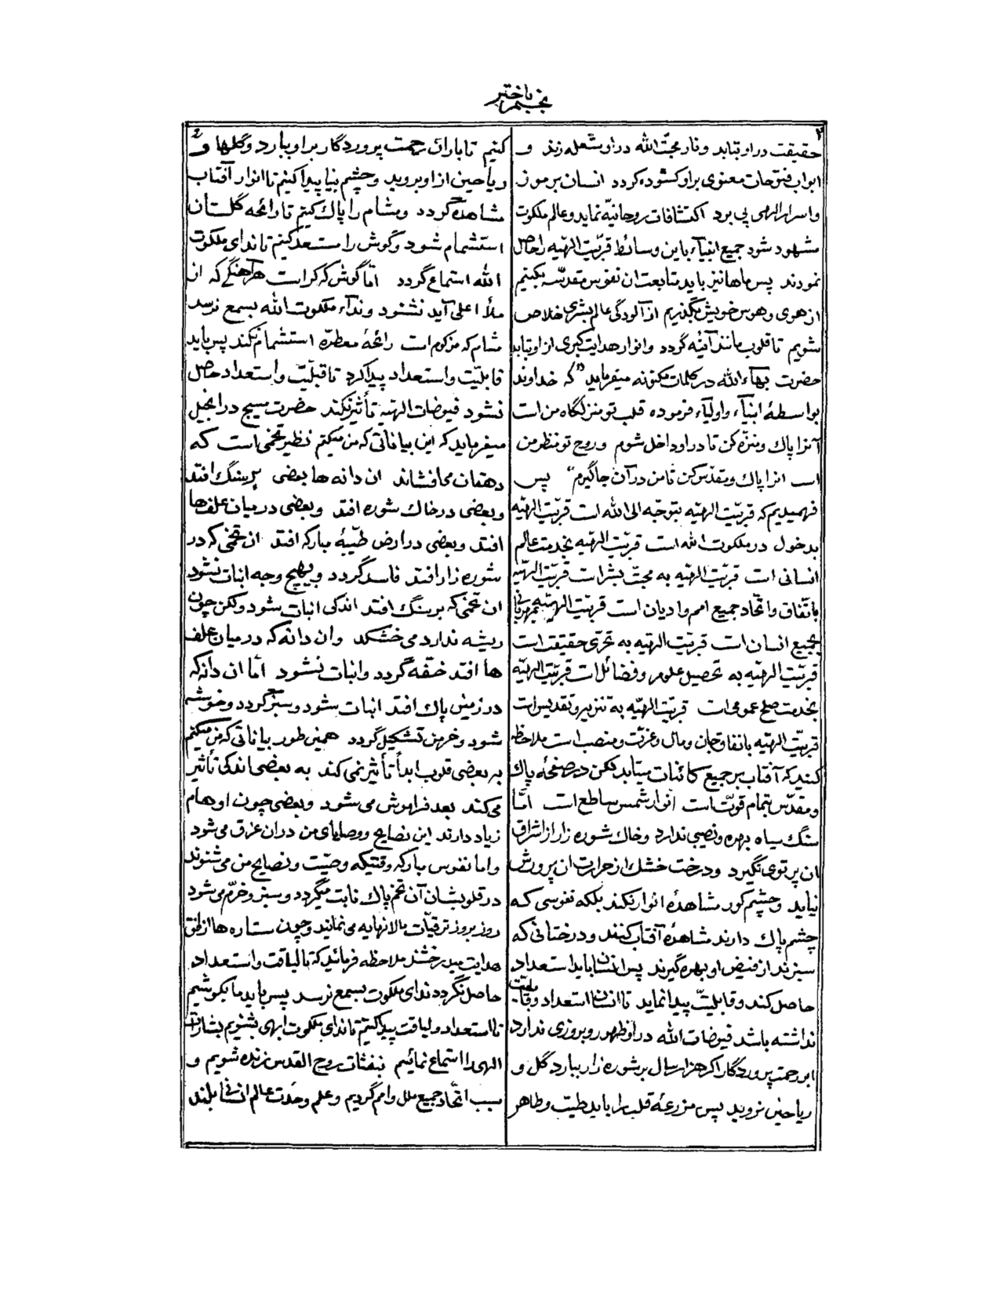 نجم باختر
۲
حقیقت در او بتابد و نار محبّت الله در او شعله زند و
ابواب فتوحات معنوی بر او گشوده گردد انسان برموز
و اسرار الهی پی برد اکتشافات روحانیّه نماید و عالم ملکوت
مشهود شود جمیع انبیآء باین وسائط قربیّت الهیّه را حاصل
نمودند پس ماها نیز باید متابعت ان نفوس مقدّسه بکنیم
از هوی و هوس خویش بگذریم از آلودگی عالم بشری خلاص
شویم تا قلوب مانند آئینه گردد و انوار هدایت کبری از او بتابد
حضرت بهآء الله در کلمات مکنونه میفرماید "که خداوند
بواسطهٔ انبیآء و اولیآء فرموده قلب تو منزلگاه من است
آنرا پاک و منزّه کن تا در او داخل شوم و روح تو منظر من
است انرا پاک و مقدّس کن تا من در آن جا گیرم" پس
فهمیدیم که قربیّت الهیّه بتوجّه الی الله است قربیّت الهیّه
بدخول در ملکوت الله است قربیّت الهیّه بخدمت عالم
انسانی است قربیّت الهیّه به محبّت بشر است قربیّت الهیّه
باتّفاق و اتّحاد جمیع امم و ادیان است قربیّت الهیّه بمهربانی
بجمیع انسان است قربیّت الهیّه به تحرّی حقیقت است
قربیّت الهیّه به تحصیل علوم و فضائل است قربیّت الهیّه
بخدمت صلح عمومی است قربیّت الهیّه به تنزیه و تقدیس است
قربیّت الهیّه بانفاق جان و مال و عزّت و منصب است ملاحظه
کنید که آفتاب بر جمیع کائنات میتابد لکن در صفحهٔ پاک
و مقدّس بتمام قوّت است انوار شمس ساطع است امّا
سنگ سیاه بهره و نصیبی ندارد و خاک شوره زار از اشراق
ان پرتوی نگیرد و درخت خشک از حرارت ان پرورش
نیابد و چشم کور مشاهدهٔ انوار نکند بلکه نفوسی که
چشم پاک دارند مشاهدهٔ آفتاب کنند و درختانی که
سبزند از فیض او بهره گیرند پس انسان باید استعداد
حاصل کند و قابلیّت پیدا نماید تا انسان استعداد و قابلیّت
نداشته باشد فیوضات الله در او ظهور و بروزی ندارد
ابر رحمت پروردگار اگر هزار سال بر شوره زار ببارد گل و
ریاحین نروید پس مزرعهٔ قلب را باید طیّب و طاهر
کنیم تا باران رحمت پروردگار بر او ببارد و گلها و
ریاحین از او بروید و چشم بینا پیدا کنیم تا انوار آفتاب
مشاهده گردد و مشام را پاک کنیم تا رائحهٔ گلستان
استشمام شود و گوش را مستعد کنیم تا ندای ملکوت
الله استماع گردد امّا گوش که کر است هر آهنگی که از
ملأ اعلی آید نشنود و ندآء ملکوت الله بسمع نرسد
مشام که مزکوم است رائحهٔ معطّره استشمام نکند پس باید
قابلیّت و استعداد پیدا کرد تا قابلیّت و استعداد حاصل
نشود فیوضات الهیّه تأثیر نکند حضرت مسیح در انجیل
میفرماید که این بیاناتی که من میکنم نظیر تخمی است که
دهقان می‌افشاند ان دانه ها بعضی بر سنگ افتد
و بعضی در خاک شوره افتد و بعضی در میان علف ها
افتد و بعضی در ارض طیّبهٔ مبارکه افتد ان تخمی که در
شوره زار افتد فاسد گردد و بهیچ وجه انبات نشود
ان تخمی که بر سنگ افتد اندکی انبات شود ولکن چون
ریشه ندارد می خشکد و ان دانه که در میان علف
ها افتد خفّه گردد و انبات نشود امّا ان دانه که
در زمین پاک افتد انبات شود و سبز گردد و خوشه
شود و خرمن تشکیل گردد همین طور بیاناتی که من میکنم
به بعضی قلوب ابداً تأثیر نمی کند به بعضی اندکی تأثیر
می‌کند بعد فراموش می شود و بعضی چون اوهام
زیاد دارند این نصایح و وصایای من در ان غرق می شود
و اما نفوس مبارکه وقتیکه وصیّت و نصایح من می شنوند
در قلوبشان آن تخم پاک نابت میگردد و سبز و خرّم می شود
روز بروز ترقیّات مالانهایه می نمایند و چون ستاره ها از افق
هدایت میدرخشند ملاحظه فرمائید که تا لیاقت و استعداد
حاصل نگردد ندای ملکوت بسمع نرسد پس باید ما بکوشیم
تا استعداد و لیاقت پیدا کنیم تا ندای ملکوت ابهی بشنویم بشارات
الهی را استماع نمائیم بنفثات روح القدس زنده شویم و
سبب اتّحاد جمیع ملل و امم گردیم و علم وحدت عالم انسانی بلند